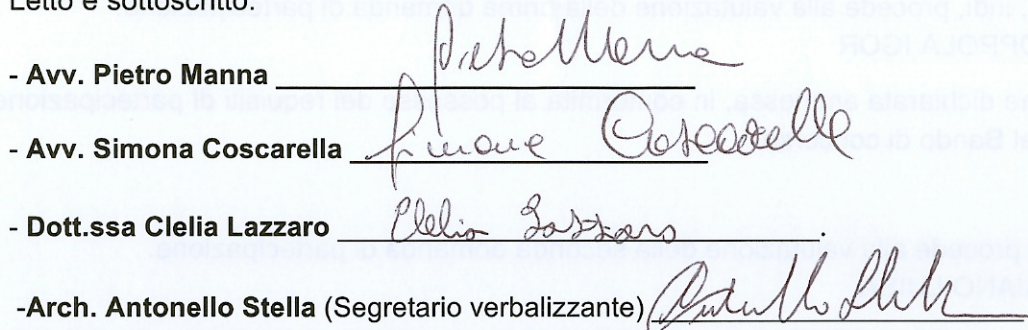 Letto e sottoscritto.
- Avv. Pietro Manna Pietro Manna
- Avv. Simona Coscarella Simona Coscarella
- Dott.ssa Clelia Lazzaro Clelia Lazzaro
-Arch. Antonello Stella (Segretario verbalizzante) Antonello Stella